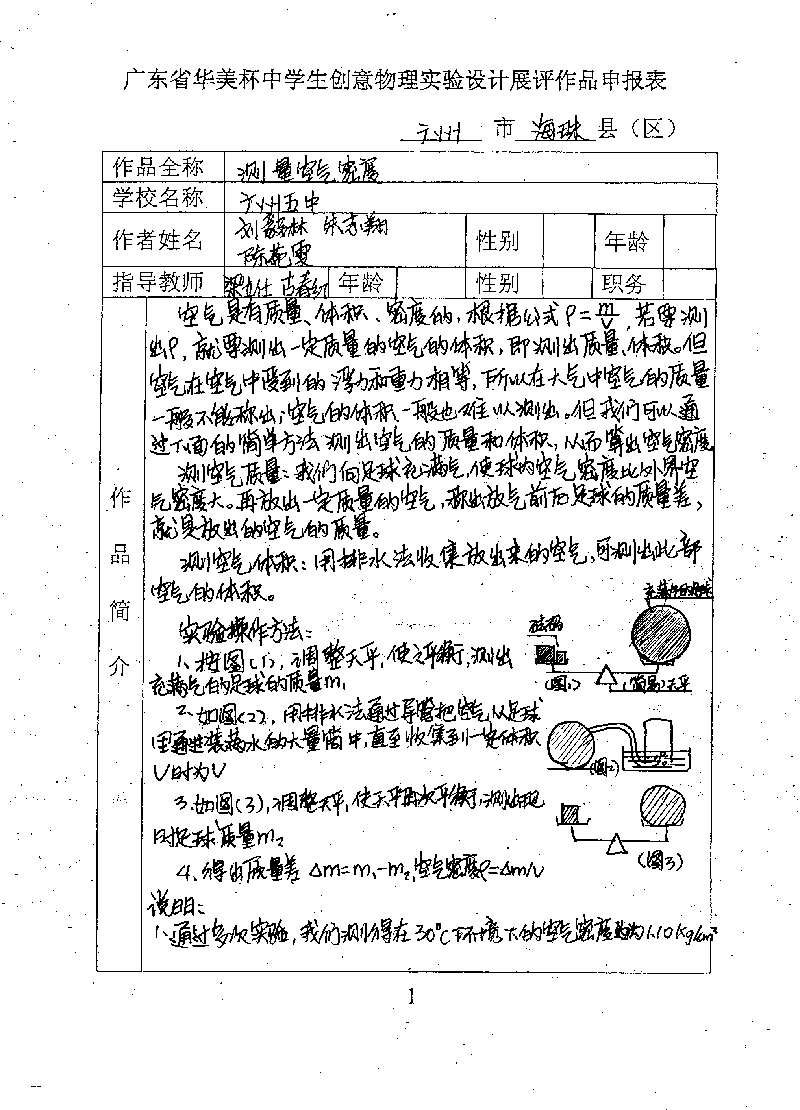 广东省华美杯中学生创意物理实验设计展评作品申报表
广州 市 海珠 县（区）
作品全称 测量空气密度
学校名称 广州五中
作者姓名 刘毅林 朱志翔 性别 年龄
陈苑雯
指导教师 梁立仕 古春红 年龄 性别 职务
作品简介
空气是有质量、体积、密度的，根据公式ρ=m/V，若要测
出ρ，就要测出一定质量的空气的体积，即测出质量、体积。但
空气在空气中受到的浮力和重力相等，所以在大气中空气的质量
一般不能称出；空气的体积一般也难以测出。但我们可以通
过下面的简单方法测出空气的质量和体积，从而算出空气密度
测空气质量：我们向足球充满气，使球内空气密度比外界空
气密度大。再放出一定质量的空气，称出放气前后足球的质量差，
就是放出的空气的质量。
测空气体积：用排水法收集放出来的空气，可测出此部
空气的体积。
实验操作方法：
1、按图（1），调整天平，使之平衡，测出
充满气的足球的质量m₁
砝码
(图1)
(简易)天平
2、如图(2)，用排水法通过导管把空气从足球
里通进装满水的大量筒中，直至收集到一定体积
V时为V
(图2)
3.如图(3)，调整天平，使天平再次平衡，测出现
时足球质量m₂
(图3)
4、得出质量差 Δm=m₁-m₂，空气密度ρ=Δm/V
说明：
1、通过多次实验，我们测得在30℃环境下的空气密度约为1.10kg/m³
1